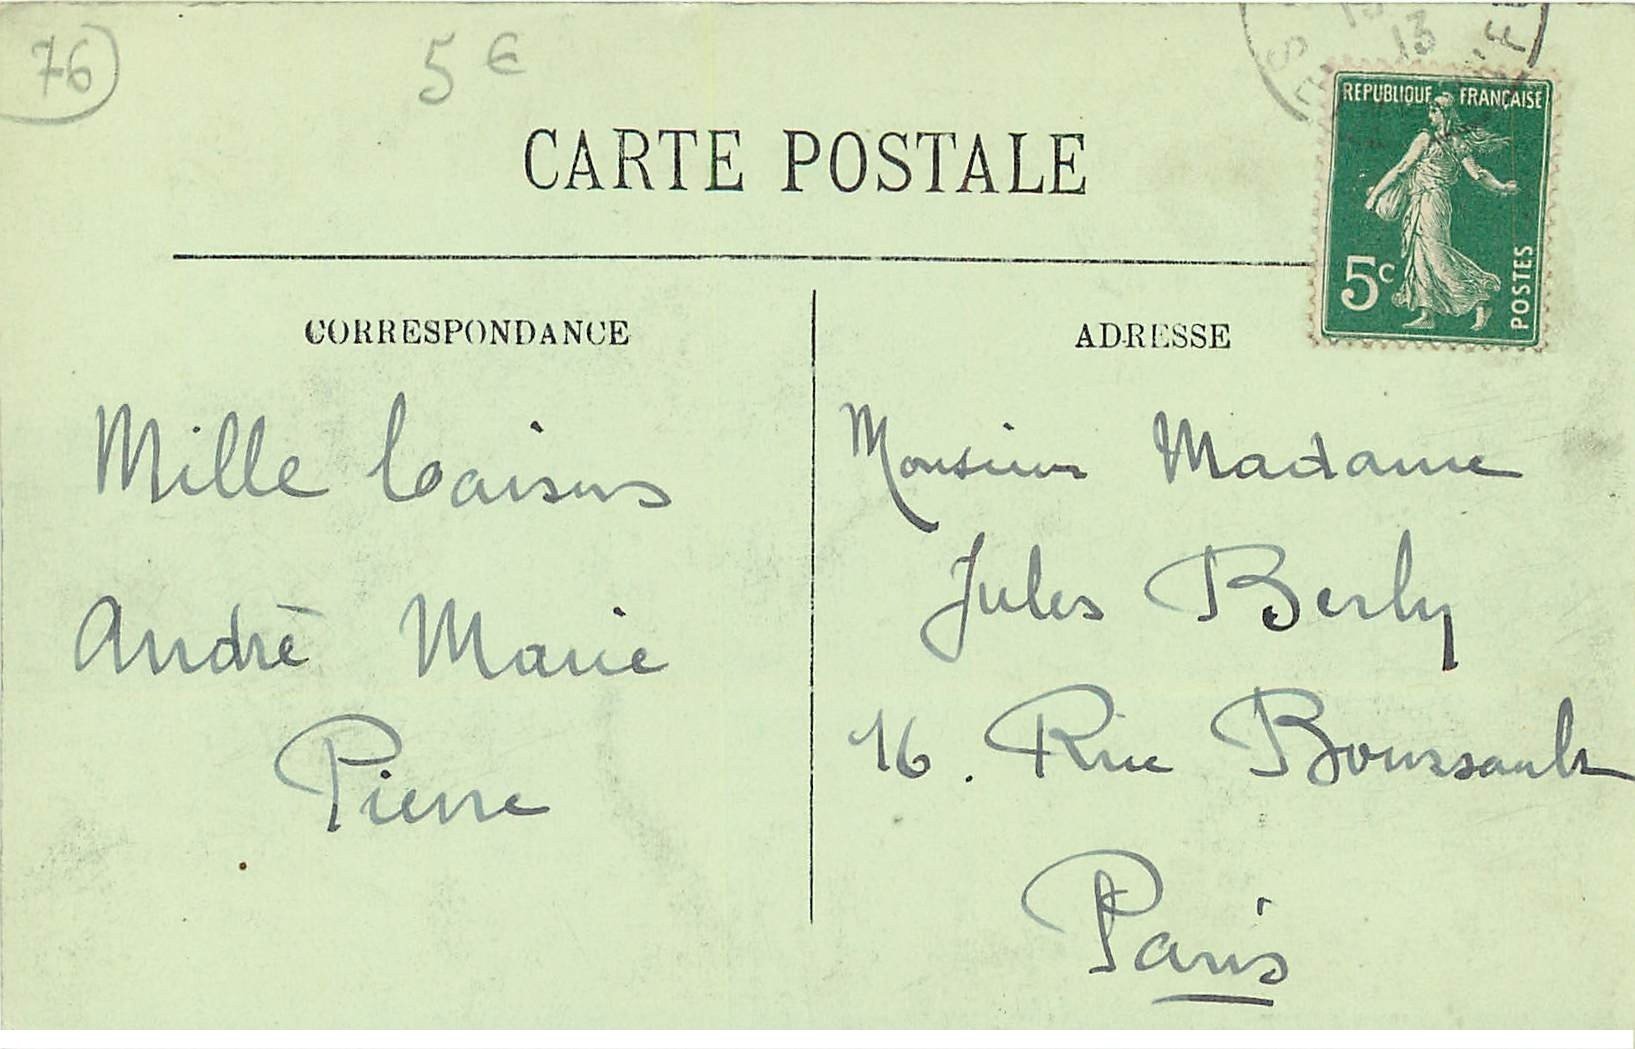 76
5 €
13
CARTE POSTALE
REPUBLIQUE FRANÇAISE
5c
POSTES
CORRESPONDANCE
Mille baisers
André Marie
Pierre
ADRESSE
Monsieur Madame
Jules Berly
16. Rue Boursault
Paris